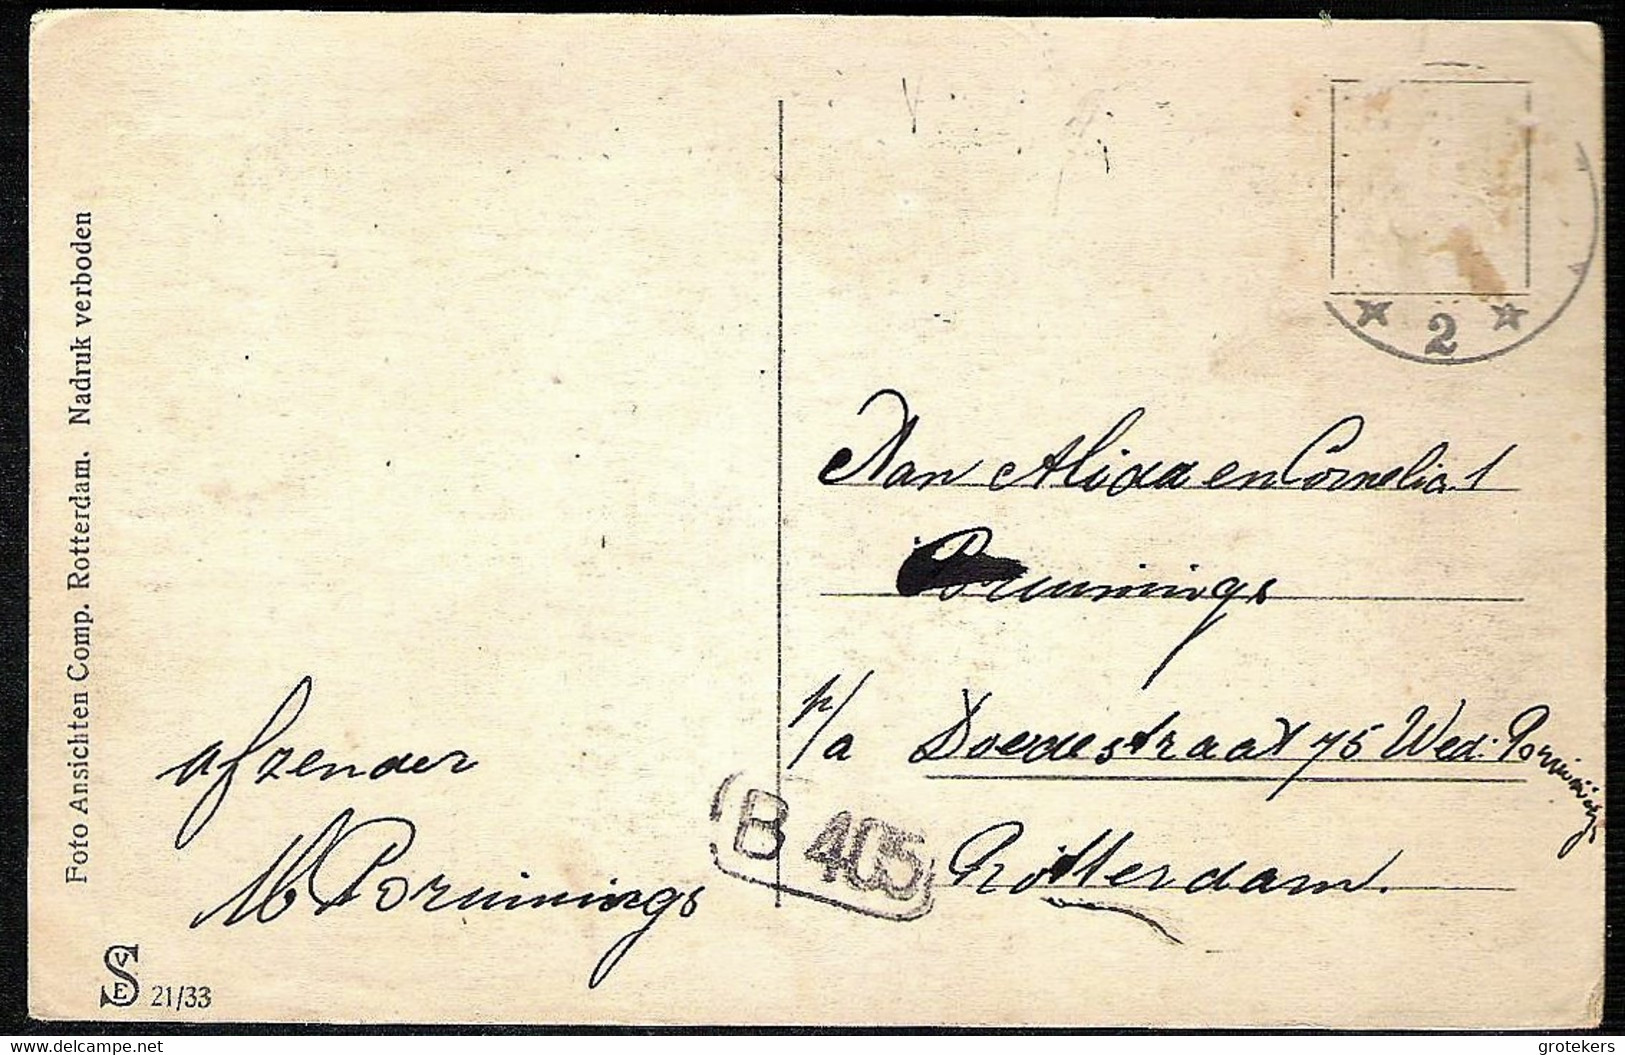 Foto Ansichten Comp. Rotterdam. Nadruk verboden
2
Aan Alida en Cornelia
Bruinings
p/a Doedestraat 75 Wed: Bruinings
Rotterdam.
B 405
afzender
M Bruinings
VSE 21/33
delcampe.net
grotekers